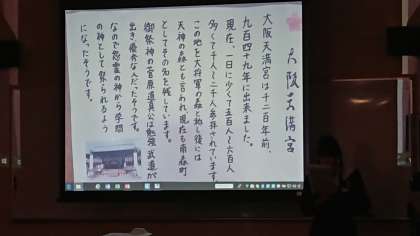 大阪天満宮
大阪天満宮は千二百年前、
九百四十九年に出来ました。
現在、一日に少くて五百人〜六百人
多くて千人〜二千人参拝されています。
この地を大将軍の森と称し後には
天神の森とも言われ、現在も南森町
としてその名を残しています。
御祭神の菅原道真公は勉強、武道が
出き、優秀な人だったそうです。
なので怨霊の神から学問
の神として祭られるよう
になったそうです。